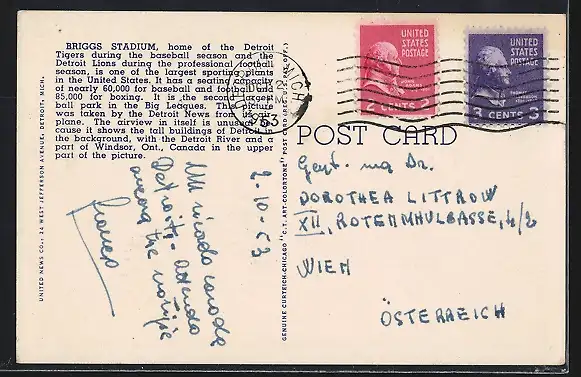 BRIGGS STADIUM, home of the Detroit
Tigers during the baseball season and the
Detroit Lions during the professional football
season, is one of the largest sporting plants
in the United States. It has a seating capacity
of nearly 60,000 for baseball and football and
85,000 for boxing. It is the second largest
ball park in the Big Leagues. This picture
was taken by the Detroit News from its air
plane. The airview in itself is unusual be-
cause it shows the tall buildings of Detroit in
the background, with the Detroit River and a
part of Windsor, Ont., Canada in the upper
part of the picture.
UNITED NEWS CO., 24 WEST JEFFERSON AVENUE, DETROIT, MICH.
2-10-53
Un ricordo
Detroit
GENUINE CURTEICH-CHICAGO "C.T. ART-COLORTONE" POST CARD (REG. U.S. PAT. OFF.)
MICH
1953
UNITED
STATES
POSTAGE
JOHN
ADAMS
2 CENTS 2
UNITED
STATES
POSTAGE
THOMAS
JEFFERSON
3 CENTS 3
POST CARD
Dr.
DOROTHEA LITTROW
XII, ROTENMHULGASSE, 4/2
WIEN
ÖSTERREICH